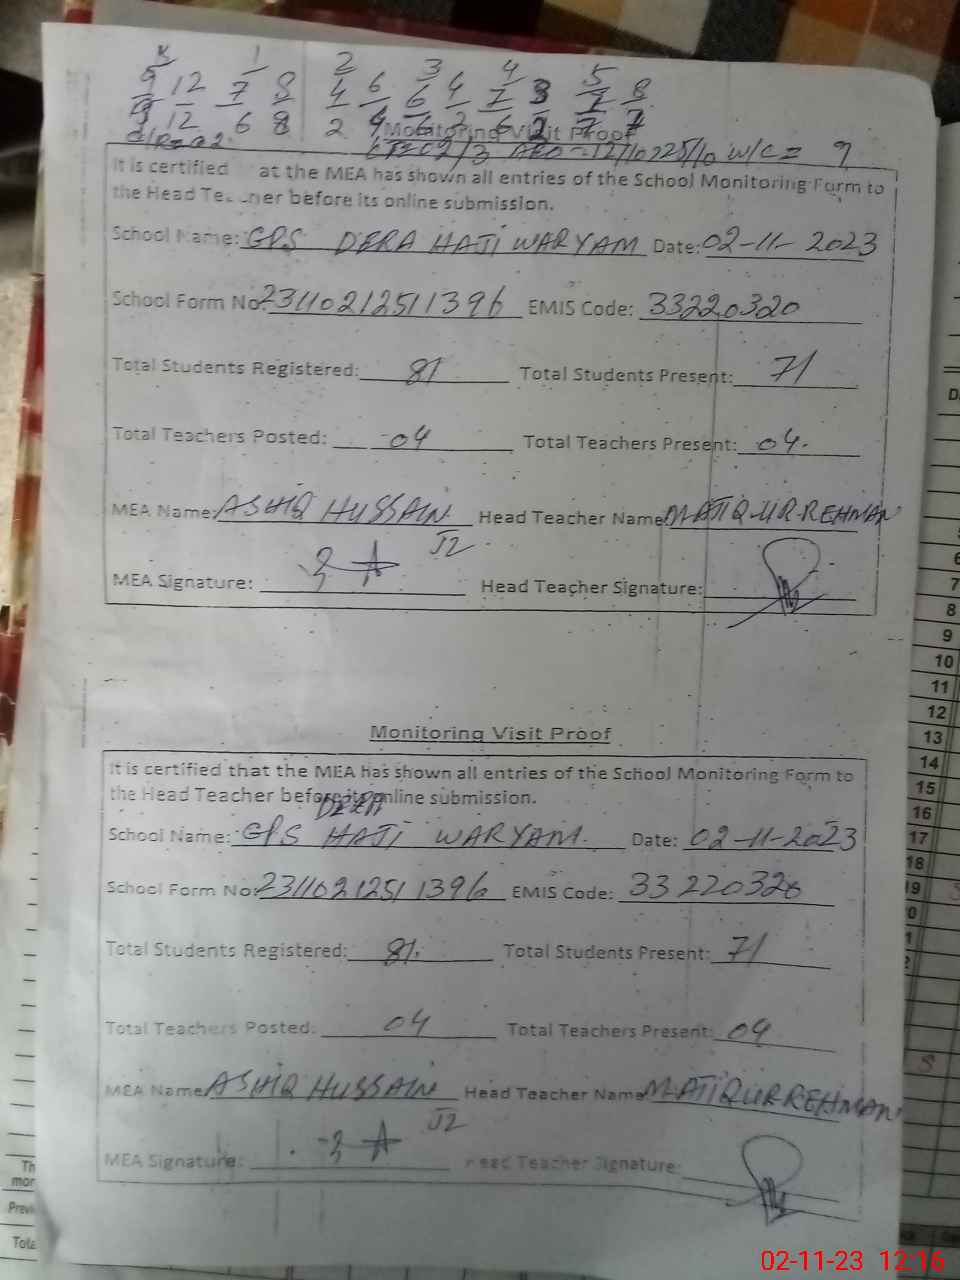 K 1 2 3 4 5
9 12 7 8 4 6 6 4 7 3 7 8
9 12 6 8 2 4 6 2 6 2 7 7
Monitoring Visit Proof
W/C = 9
It is certified at the MEA has shown all entries of the School Monitoring Form to
the Head Te cher before its online submission.
School Name: GPS DERA HAJI WARYAM Date: 02-11-2023
School Form No: 23110212511396 EMIS Code: 33220320
Total Students Registered: 81 Total Students Present: 71
Total Teachers Posted: 04 Total Teachers Present: 04.
MEA Name: ASHIQ HUSSAIN Head Teacher Name MATIQ-UR-REHMAN
J2
MEA Signature: Head Teacher Signature:
Monitoring Visit Proof
It is certified that the MEA has shown all entries of the School Monitoring Form to
the Head Teacher before its online submission.
DERA
School Name: GPS HAJI WARYAM. Date: 02-11-2023
School Form No: 23110212511396 EMIS Code: 33220320
Total Students Registered: 81. Total Students Present: 71
Total Teachers Posted: 04 Total Teachers Present: 04
MEA Name: ASHIQ HUSSAIN Head Teacher Name MATIQURREHMAN
J2
MEA Signature: Head Teacher Signature:
6
7
8
9
10
11
12
13
14
15
16
17
18
19
Th
mor
Previ
Tota
02-11-23 12:16